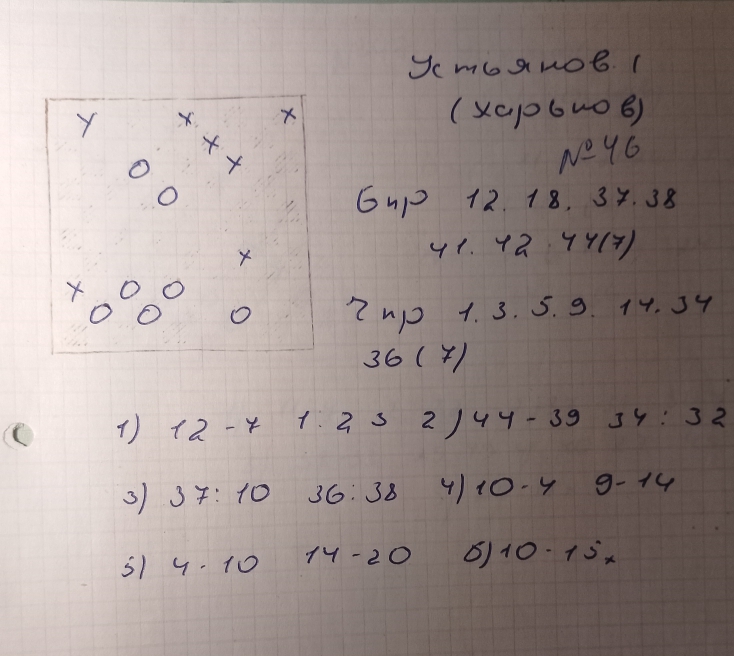 Устьянов. (
(харьков)
№46
б пр 12. 18. 37. 38
41. 42. 44(7)
ч пр 1. 3. 5. 9. 14. 34
36 (7)
1) 12-7 1:23 2) 44-39 34:32
3) 37:10 36:38 4) 10-4 9-14
5) 4-10 14-20 6) 10-15x